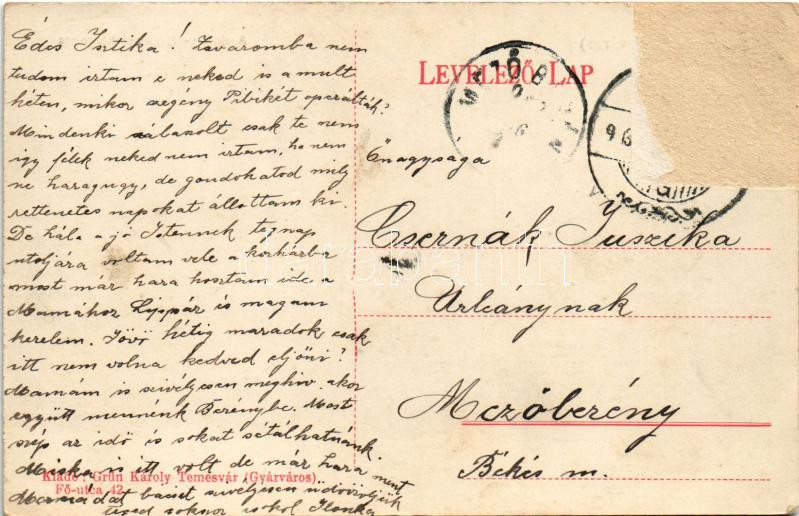 Édes Isztika! Zavaromba nem
tudom irtam e neked is a mult
héten, mikor szegény Pibikét operálták?
Mindenki válaszolt csak te nem
igy félek neked nem irtam, ha nem
ne haragugy, de gondolhatod mily
rettenetes napokat állottam ki.
De hála a jó Istennek tegnap
utoljára voltam vele a korházba
most már haza hoztam ide a
Mamához Lippár is magam
kerelem. Jövő hétig maradok, csak
itt nem volna kedved eljöni?
Mamám is szivélyesen meghiv akor
együtt mennénk Berénybe. Most
szép az idő is sokat sétálhatnánk.
Miska is itt volt de már haza ment
szivélyesen üdvözöljük
téged sokszor csokol Ilonka
Kiadó: Grün Károly Temesvár (Gyárváros)
Fő-utca 42.
LEVELEZŐ LAP
Őnagysága
Csernák Juszika
Urleánynak
Mezőberény
Békés m.